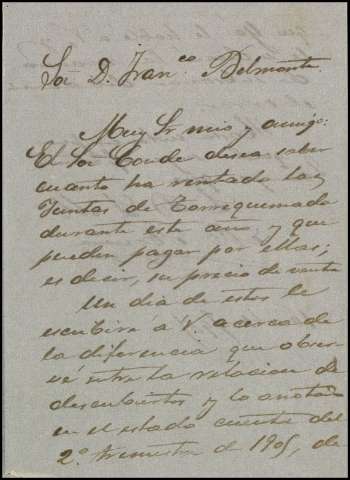 Sor. D. Franco. Belmonte
Muy Sr. mio y amigo:
El Sor Conde desea saber
cuanto ha rentado las
Juntas de Torrequemada
durante este año y que
pueden pagar por ellas;
es decir, su precio de venta
Un dia de estos le
escribiré á V. acerca de
la diferencia que obser-
vé entre la relacion de
descubiertos y lo anotado
en el estado cuenta del
2º. trimestre de 1905, de